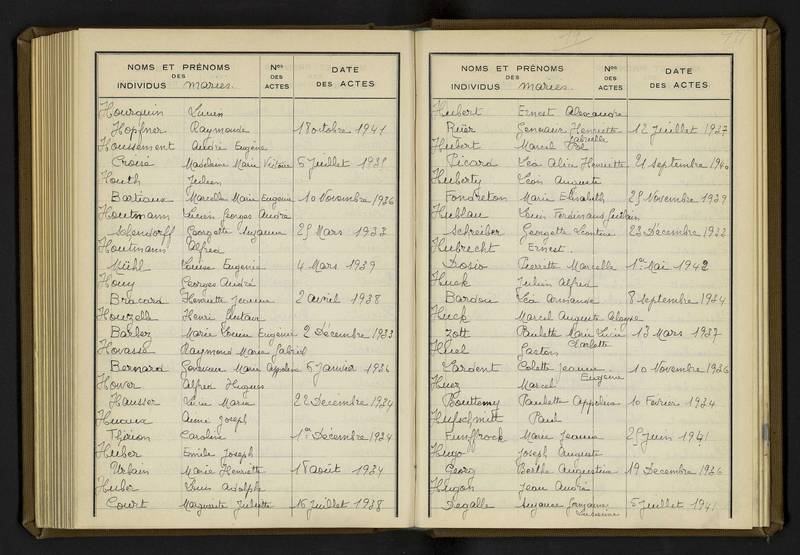 NOMS ET PRÉNOMS
DES
INDIVIDUS mariés.
Nos
DES
ACTES
DATE
DES ACTES
Hourquin Lucien
Hopfner Raymonde 18 octobre 1941
Houssement André Eugène
Croisé Madeleine Marie Victoire 5 Juillet 1935
Houth Julien
Bartiaux Marcelle Marie Eugénie 10 Novembre 1936
Houtmann Lucien Georges André
Schendorff Georgette Suzanne 25 Mars 1933
Houtmann Alfred
Kühl Louise Eugénie 4 Mars 1939
Houy Georges André
Bracard Henriette Jeanne 2 avril 1938
Houzelle Henri Gustave
Barlez Marie Louise Eugénie 2 Décembre 1933
Hovasse Raymond Marie Gabriel
Bernard Geneviève Marie Appoline 6 Janvier 1936
Hower Alfred Hugues
Hausser Marie 22 Décembre 1934
Aimé Joseph
Thirion Caroline 1er Décembre 1934
Huber Emile Joseph
Urbain Marie Henriette 18 août 1934
Huber Louis Adolphe
Court Marguerite Juliette 16 Juillet 1938
NOMS ET PRÉNOMS
DES
INDIVIDUS mariés.
Nos
DES
ACTES
DATE
DES ACTES
Hubert Ernest Alexandre
Henriette Gabrielle 12 Juillet 1937
Hubert Marcel
Picard Léa Aline Henriette 21 septembre 1940
Huberty Léon Auguste
Fondreton Marie Elisabeth 25 Novembre 1939
Hublau Louis Ferdinand
Schreiber Georgette Léontine 23 Décembre 1932
Hubrecht Ernest
Dosio Pierrette Marcelle 1er Mai 1942
Huck Julien Alfred
Bardou Léa Armande 8 septembre 1934
Huck Marcel Auguste Aloyse
Zott Paulette Marie Lucie 13 Mars 1937
Huel Gaston Charlotte
Lardent Colette Jeanne Eugénie 10 Novembre 1936
Huez Marcel
Bouttemy Paulette Appoline 10 Février 1934
Hufschmitt Paul
Eunffrock Marie Jeanne 25 Juin 1941
Hugo Joseph Auguste
Georg Berthe Augustine 19 Décembre 1936
Hugon Jean André
Degalle Suzanne 5 Juillet 1941